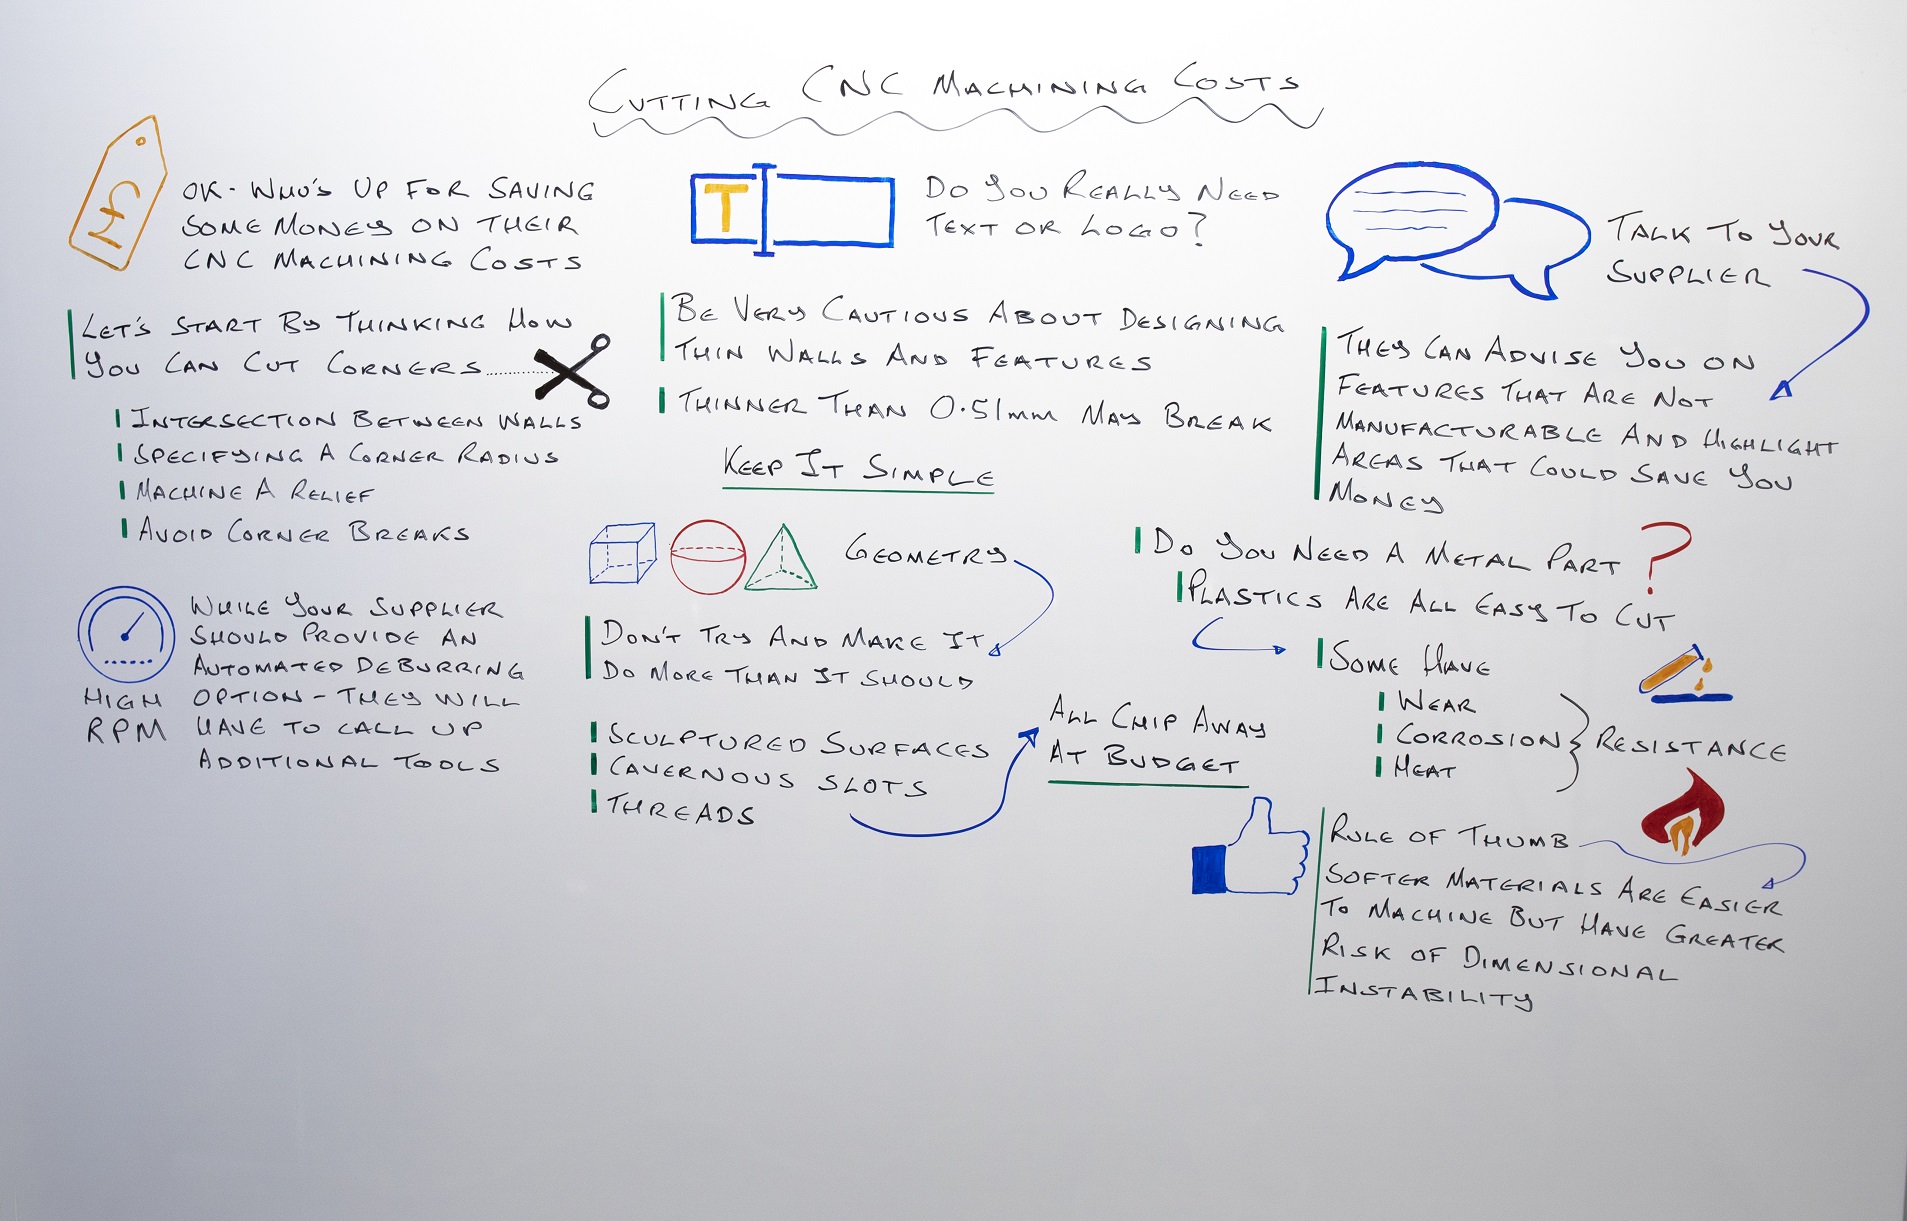 CUTTING CNC MACHINING COSTS
£
OK - WHO'S UP FOR SAVING
SOME MONEY ON THEIR
CNC MACHINING COSTS
LET'S START BY THINKING HOW
YOU CAN CUT CORNERS..........
INTERSECTION BETWEEN WALLS
SPECIFYING A CORNER RADIUS
MACHINE A RELIEF
AVOID CORNER BREAKS
HIGH
RPM
WHILE YOUR SUPPLIER
SHOULD PROVIDE AN
AUTOMATED DEBURRING
OPTION - THEY WILL
HAVE TO CALL UP
ADDITIONAL TOOLS
T
DO YOU REALLY NEED
TEXT OR LOGO?
BE VERY CAUTIOUS ABOUT DESIGNING
THIN WALLS AND FEATURES
THINNER THAN 0.51mm MAY BREAK
KEEP IT SIMPLE
GEOMETRY
DON'T TRY AND MAKE IT
DO MORE THAN IT SHOULD
SCULPTURED SURFACES
CAVERNOUS SLOTS
THREADS
ALL CHIP AWAY
AT BUDGET
TALK TO YOUR
SUPPLIER
THEY CAN ADVISE YOU ON
FEATURES THAT ARE NOT
MANUFACTURABLE AND HIGHLIGHT
AREAS THAT COULD SAVE YOU
MONEY
DO YOU NEED A METAL PART ?
PLASTICS ARE ALL EASY TO CUT
SOME HAVE
WEAR
CORROSION } RESISTANCE
HEAT
RULE OF THUMB
SOFTER MATERIALS ARE EASIER
TO MACHINE BUT HAVE GREATER
RISK OF DIMENSIONAL
INSTABILITY